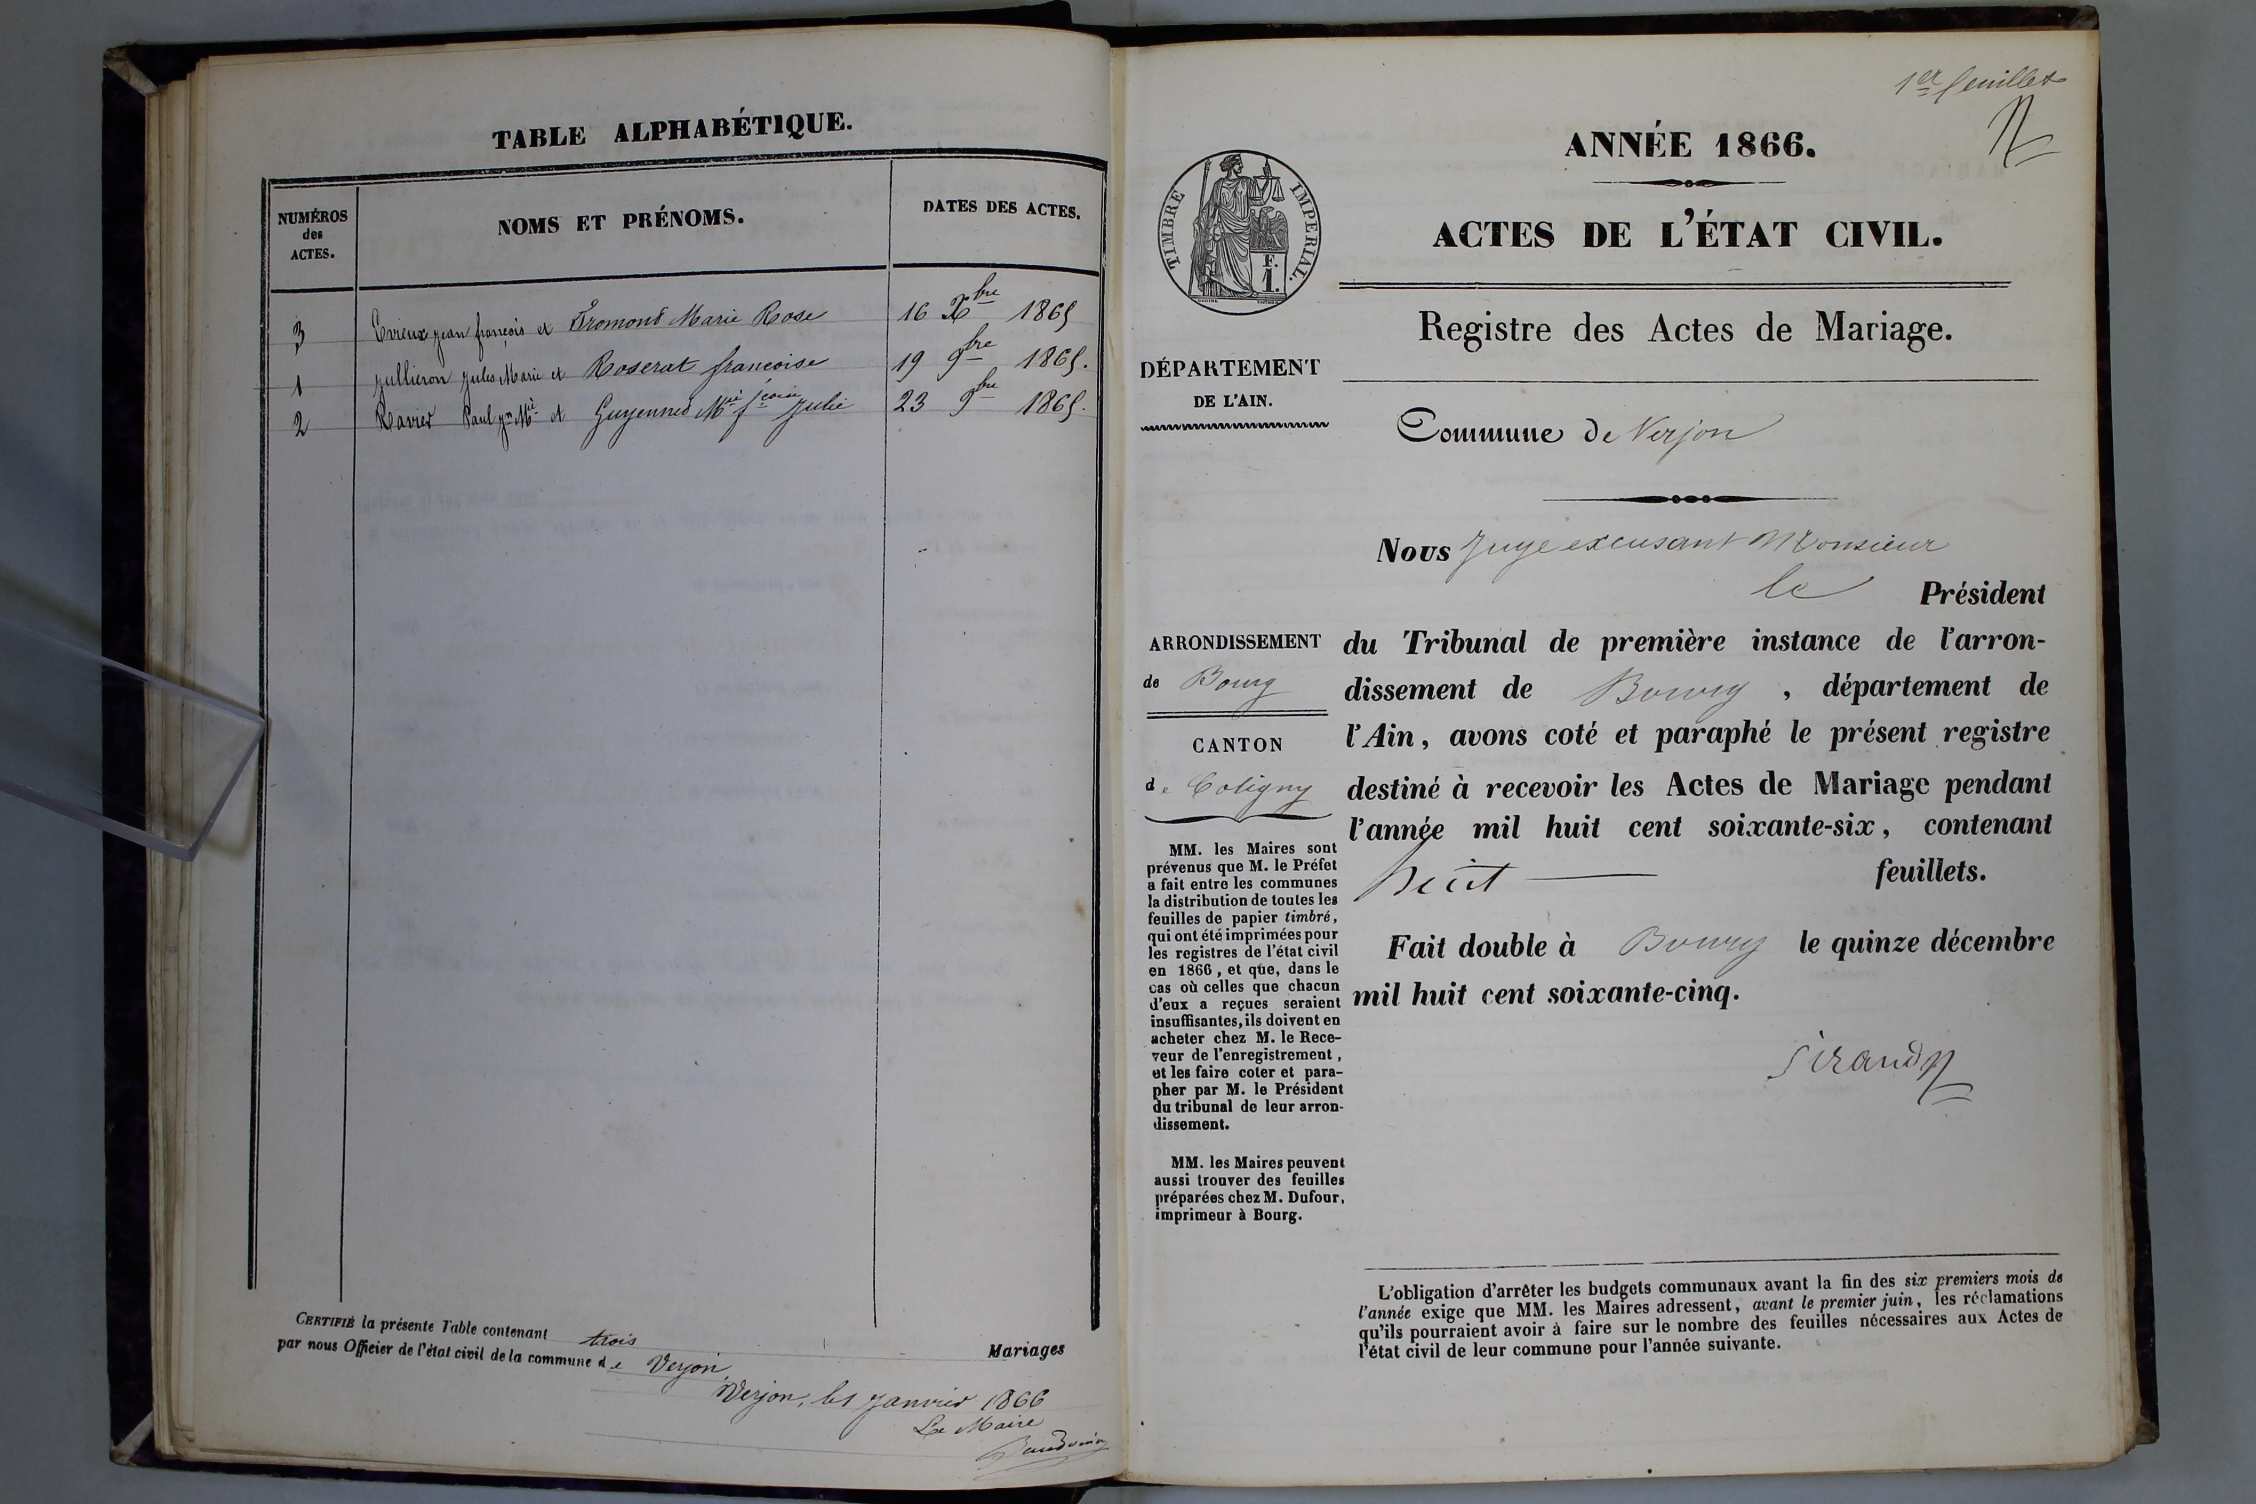 TABLE ALPHABÉTIQUE.
NUMÉROS
des
ACTES.
NOMS ET PRÉNOMS.
DATES DES ACTES.
3 Evieux jean françois et Fromond Marie Rose 16 Xbre 1865
1 Jullieron Jules Marie et Roserat françoise 19 9bre 1865.
2 Ravier Paul Jn Mie et Guyennet Mrie fcoise Julie 23 9bre 1865.
CERTIFIÉ la présente Table contenant trois Mariages
par nous Officier de l'état civil de la commune de Verjon,
Verjon, le 1 Janvier 1866
Le Maire
1er feuillet
ANNÉE 1866.
ACTES DE L'ÉTAT CIVIL.
TIMBRE IMPÉRIAL.
F.
1.
Registre des Actes de Mariage.
DÉPARTEMENT
DE L'AIN.
Commune de Verjon
Nous Juge excusant Monsieur
le Président
ARRONDISSEMENT
de Bourg
CANTON
de Coligny
du Tribunal de première instance de l'arron-
dissement de Bourg, département de
l'Ain, avons coté et paraphé le présent registre
destiné à recevoir les Actes de Mariage pendant
l'année mil huit cent soixante-six, contenant
huit feuillets.
Fait double à Bourg le quinze décembre
mil huit cent soixante-cinq.
Sirand
MM. les Maires sont
prévenus que M. le Préfet
a fait entre les communes
la distribution de toutes les
feuilles de papier timbré,
qui ont été imprimées pour
les registres de l'état civil
en 1866, et que, dans le
cas où celles que chacun
d'eux a reçues seraient
insuffisantes, ils doivent en
acheter chez M. le Rece-
veur de l'enregistrement,
et les faire coter et para-
pher par M. le Président
du tribunal de leur arron-
dissement.
MM. les Maires peuvent
aussi trouver des feuilles
préparées chez M. Dufour,
imprimeur à Bourg.
L'obligation d'arrêter les budgets communaux avant la fin des six premiers mois de
l'année exige que MM. les Maires adressent, avant le premier juin, les réclamations
qu'ils pourraient avoir à faire sur le nombre des feuilles nécessaires aux Actes de
l'état civil de leur commune pour l'année suivante.